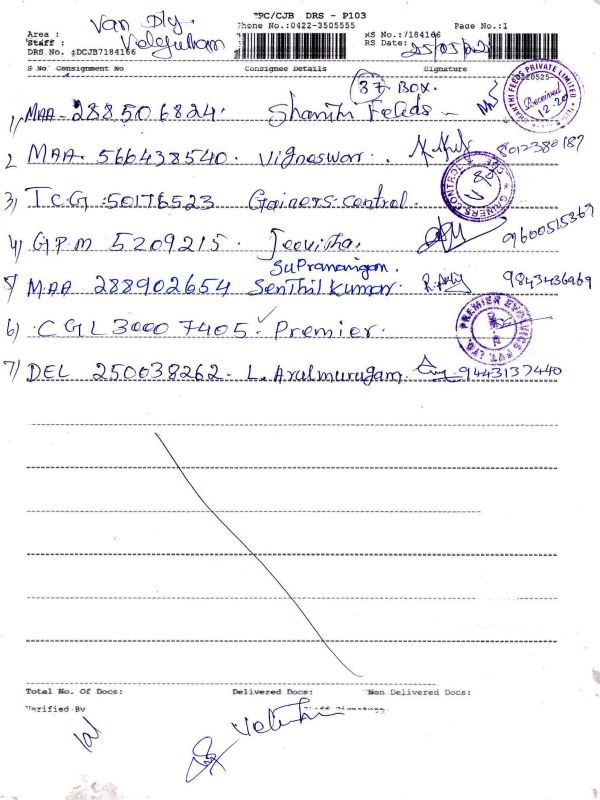 TPC/CJB DRS - P103
Area : Van Dly. Phone No.:0422-3505555 RS No.:7184166 Page No.:1
Staff : Velayutham RS Date: 25/05/
DRS No. :DCJB7184166
S No Consignment No Consignee Details Signature
37 BOX.
1) MAA - 288506824. Shanthi Feeds -
SHANTHI FEEDS PRIVATE LIMITED
Received
12.20
2 MAA. 566438540. Vignaswar. 8012380187
3) TCG :50176523 Gainers control.
GAINERS CONTROL
4) GPM 5209215. Jeevitha. 9600515369
Supramanigan.
5) MAA 288902654 Senthil Kumar 9843436969
6) CGL 30007405. Premier.
PREMIER EVOLVICS PVT. LTD.
7) DEL 250038262. L. Arulmurugam. 9443137440
Total No. Of Docs: Delivered Docs: Non Delivered Docs:
Verified By